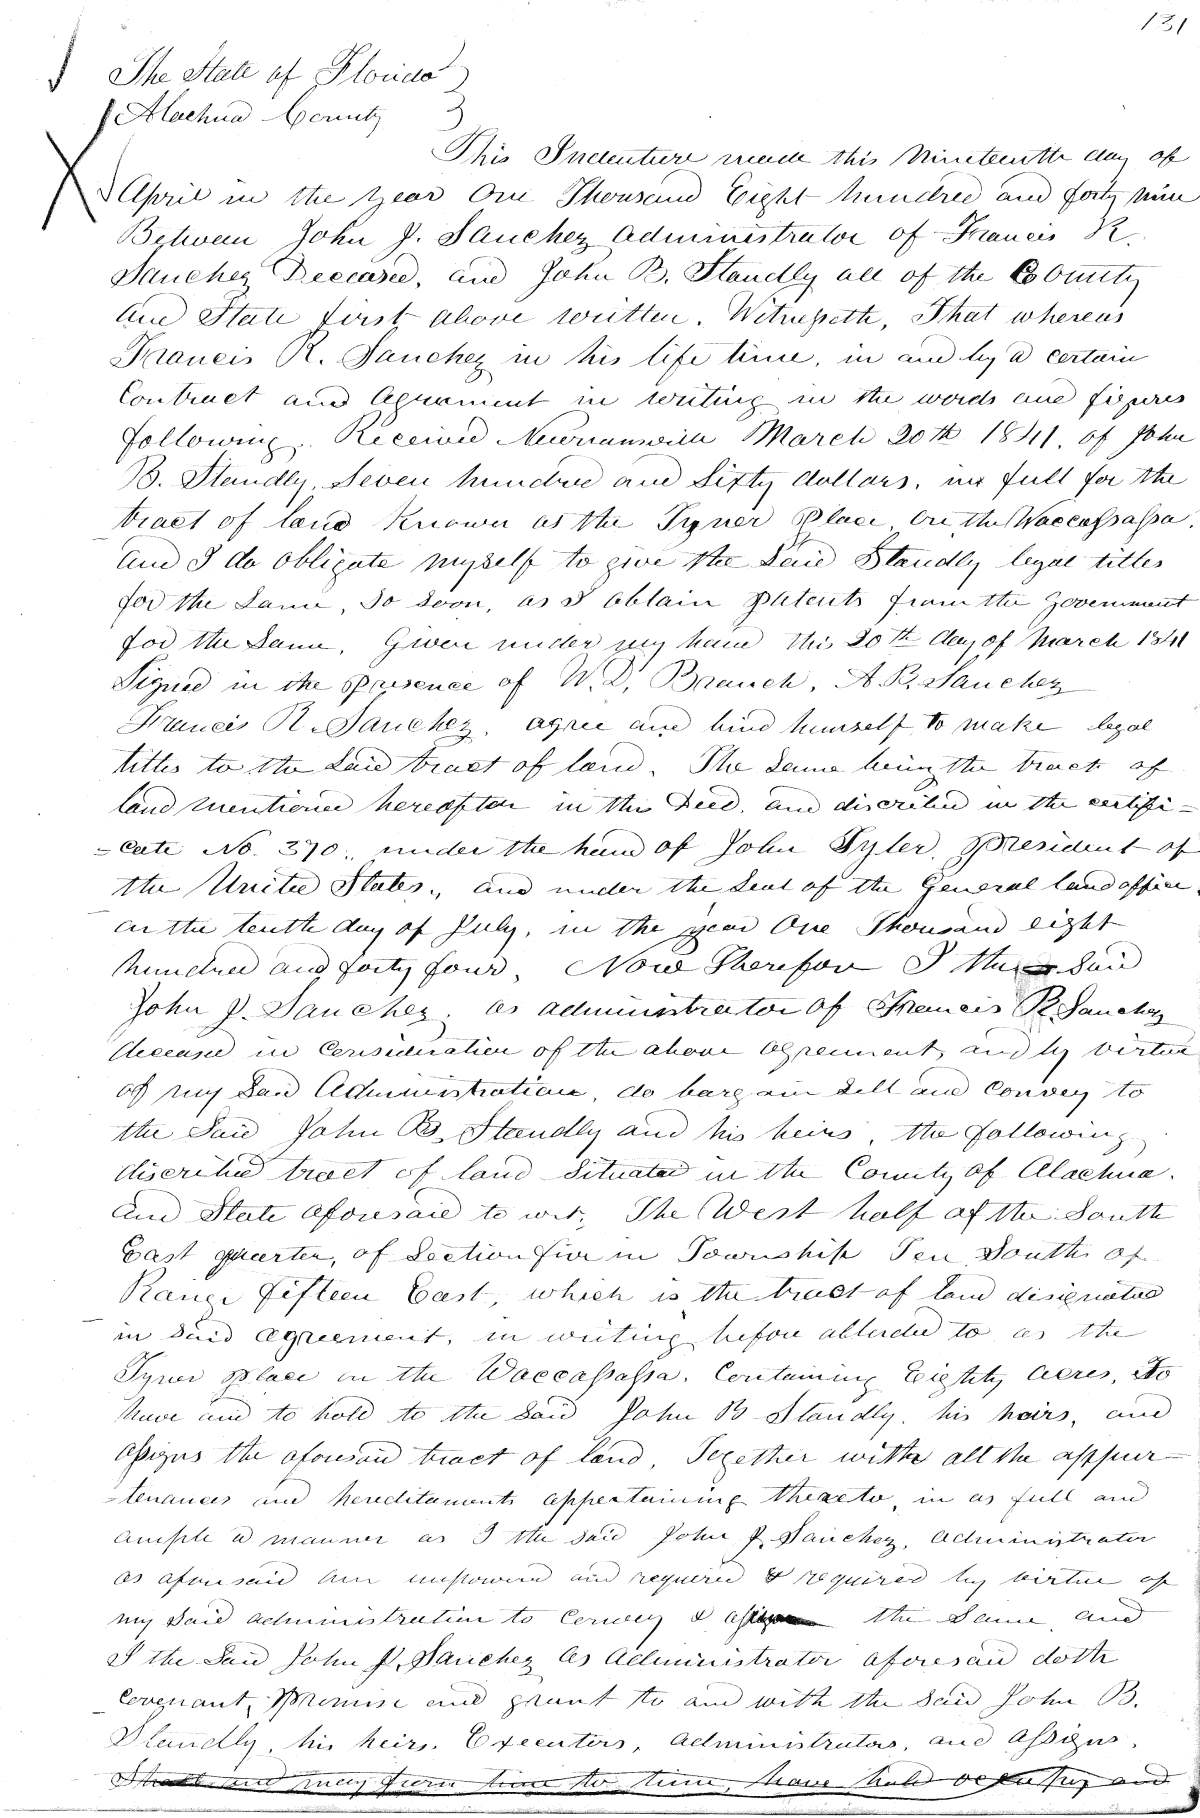 131
The State of Florida
Alachua County
This Indenture made this Nineteenth day of
April in the year One Thousand Eight hundred and forty nine
Between John J. Sanchez administrator of Francis R.
Sanchez Deceased, and John B. Standly all of the County
and State first above written. Witnesseth, That whereas
Francis R. Sanchez in his life time, in and by a certain
Contract and Agreament in writing in the words and figures
following. Received Newnansville March 20th 1841. of John
B. Standly, Seven hundred and Sixty dollars, in full for the
tract of land Known as the Tyner place on the Waccassassa.
and I do obligate myself to give the Said Standly legal titles
for the Same, So Soon, as I obtain patents from the government
for the Same, Given under my hand this 20th day of March 1841
Signed in the presence of W. D. Branch, A. R. Sanchez
Francis R. Sanchez, agree and bind himself to make legal
titles to the Said tract of land. The Same being the tract of
land mentioned hereafter in this Deed, and discribed in the certifi-
-cate No. 390., under the hand of John Tyler, President of
the United States., and under the Seal of the General land office.
on the tenth day of July, in the year One Thousand eight
hundred and forty four, Now Therefore I the Said
John J. Sanchez, as administrator of Francis R. Sanchez
deceased in Consideration of the above agreement, and by virtue
of my Said Administration, do bargain Sell and Convey to
the Said John B. Standly and his heirs, the following
discribed tract of land Situated in the County of Alachua.
and State aforesaid to wit; The West half of the South
East quarter, of Section five in Township Ten South of
Range fifteen East, which is the tract of land designated
in Said agreement, in writing before alluded to as the
Tyner place on the Waccassassa. Containing Eighty acres, To
have and to hold to the Said John B Standly. his heirs, and
assigns the aforesaid tract of land, Together with all the appur-
-tenances and hereditaments appertaining thereto, in as full and
ample a manner as I the said John J. Sanchez, administrator
as aforesaid am impowered and required & required by virtue of
my Said administration to Convey & the Same, and
I the Said John J. Sanchez as administrator aforesaid doth
Covenant, Promise and grant to and with the Said John B.
Standly, his heirs, Executors, administrators, and assigns,
Shall and may from time to time, have hold occupy and